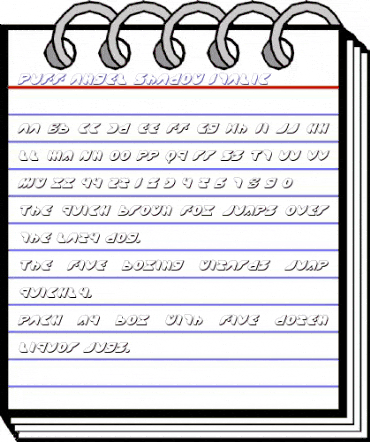 Puff Angel Shadow Italic
Aa Bb Cc Dd Ee Ff Gg Hh Ii Jj Kk
Ll Mm Nn Oo Pp Qq Rr Ss Tt Uu Vv
Ww Xx Yy Zz 1 2 3 4 5 6 7 8 9 0
The quick brown fox jumps over
the lazy dog.
The five boxing wizards jump
quickly.
Pack my box with five dozen
liquor jugs.